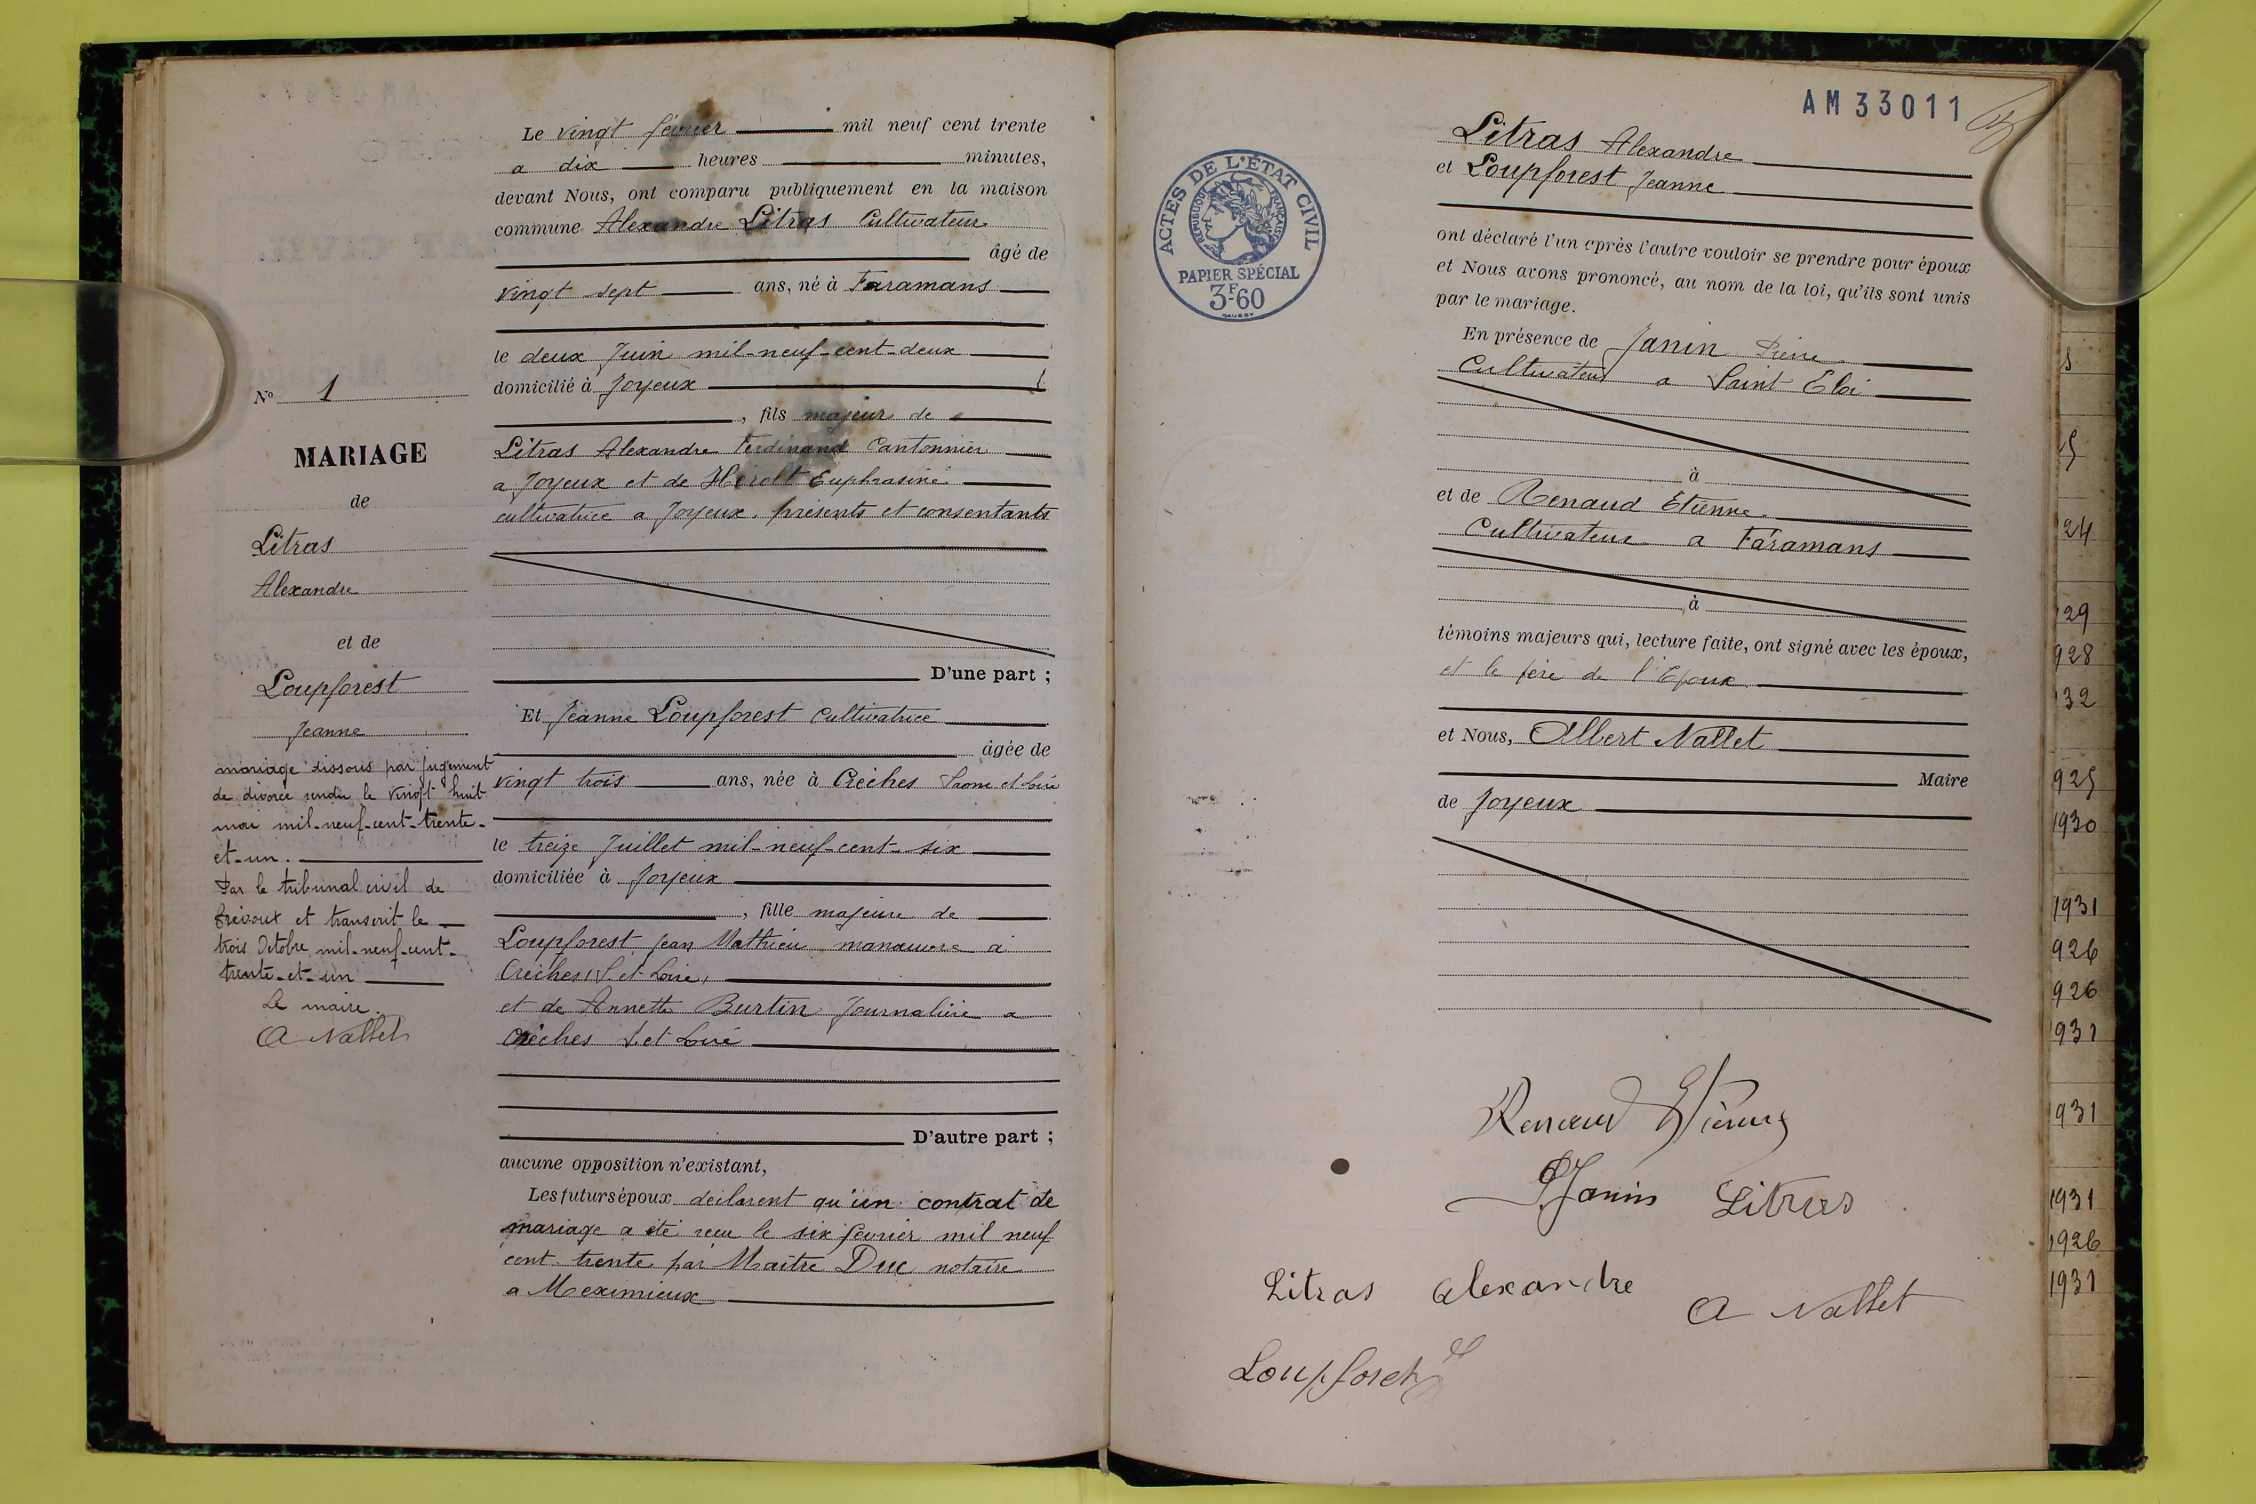 N° 1
MARIAGE
de
Litras
Alexandre
et de
Loupforest
Jeanne
mariage dissous par jugement
de divorce rendu le vingt huit
mai mil-neuf-cent-trente-
et-un.
Par le tribunal civil de
Trévoux et transcrit le
trois Octobre mil-neuf-cent-
trente-et-un
Le maire.
A Nallet
Le vingt février mil neuf cent trente
a dix heures minutes,
devant Nous, ont comparu publiquement en la maison
commune Alexandre Litras Cultivateur
âgé de
vingt-sept ans, né à Faramans
le deux Juin mil-neuf-cent-deux
domicilié à Joyeux
, fils majeur de
Litras Alexandre Ferdinand Cantonnier
a Joyeux et de Hérolt Euphrasine
cultivatrice a Joyeux. présents et consentants
D'une part ;
Et Jeanne Loupforest Cultivatrice
âgée de
vingt trois ans, née à Crèches Saone et Loire
le treize Juillet mil-neuf-cent-six
domiciliée à Joyeux
, fille majeure de
Loupforest Jean Mathieu manœuvre à
Crèches (S. et Loire)
et de Annette Burtin Journalière a
Crèches S. et Loire
D'autre part ;
aucune opposition n'existant,
Les futurs époux déclarent qu'un contrat de
mariage a été reçu le six février mil neuf
cent trente par Maître Duc notaire
a Meximieux
AM33011
ACTES DE L'ÉTAT CIVIL
RÉPUBLIQUE FRANÇAISE
PAPIER SPÉCIAL
3F60
Litras Alexandre
et Loupforest Jeanne
ont déclaré l'un après l'autre vouloir se prendre pour époux
et Nous avons prononcé, au nom de la loi, qu'ils sont unis
par le mariage.
En présence de Janin Pierre
Cultivateur a Saint Eloi
à
et de Renaud Etienne
Cultivateur a Faramans
à
témoins majeurs qui, lecture faite, ont signé avec les époux,
et le père de l'Epoux
et Nous, Albert Nallet
Maire
de Joyeux
Renaud Etienne
P Janin Litras
Litras alexandre
A Nallet
Loupforest
24
29
928
32
925
1930
1931
926
926
931
931
1931
1926
1931